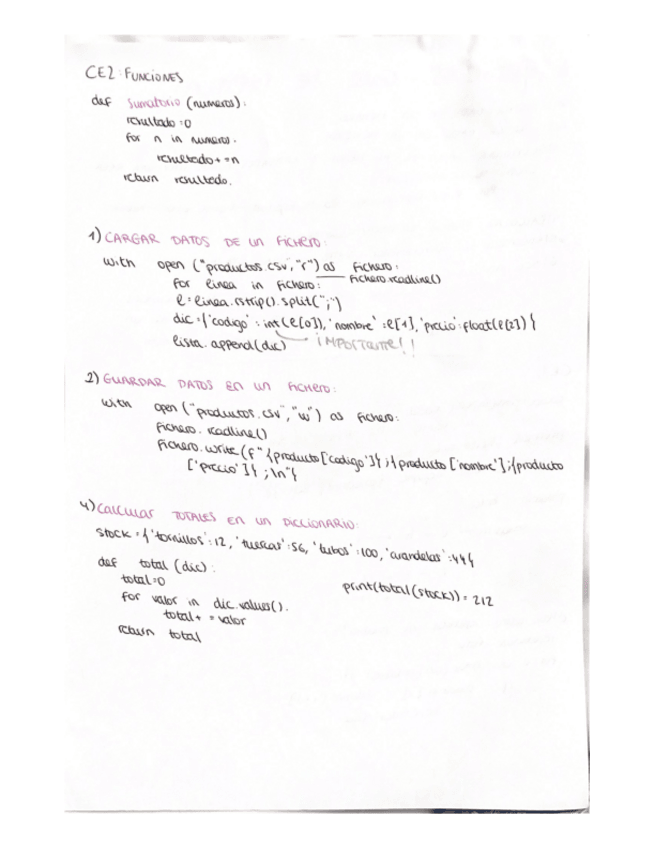 CE2: FUNCIONES
def sumatorio (numeros):
resultado=0
for n in numeros.
resultado+=n
return resultado.
1) CARGAR DATOS DE UN FICHERO:
with open ("productos.csv","r") as fichero:
fichero.readline()
for linea in fichero:
l=linea.rstrip().split(";")
dic={'codigo': int(l[0]), 'nombre':l[1], 'precio':float(l[2])}
lista.append(dic) iMPORTANTE!!
2) GUARDAR DATOS EN UN FICHERO:
with open ("productos.csv","w") as fichero:
fichero.readline()
fichero.write(f"{producto['codigo']};{producto['nombre'];{producto
['precio']};\n"{
4) CALCULAR TOTALES EN UN DICCIONARIO:
stock={'tornillos':12, 'tuercas':56, 'tubos':100, 'arandelas':44}
def total (dic):
total=0
for valor in dic.values().
total+=valor
return total
print(total(stock))=212